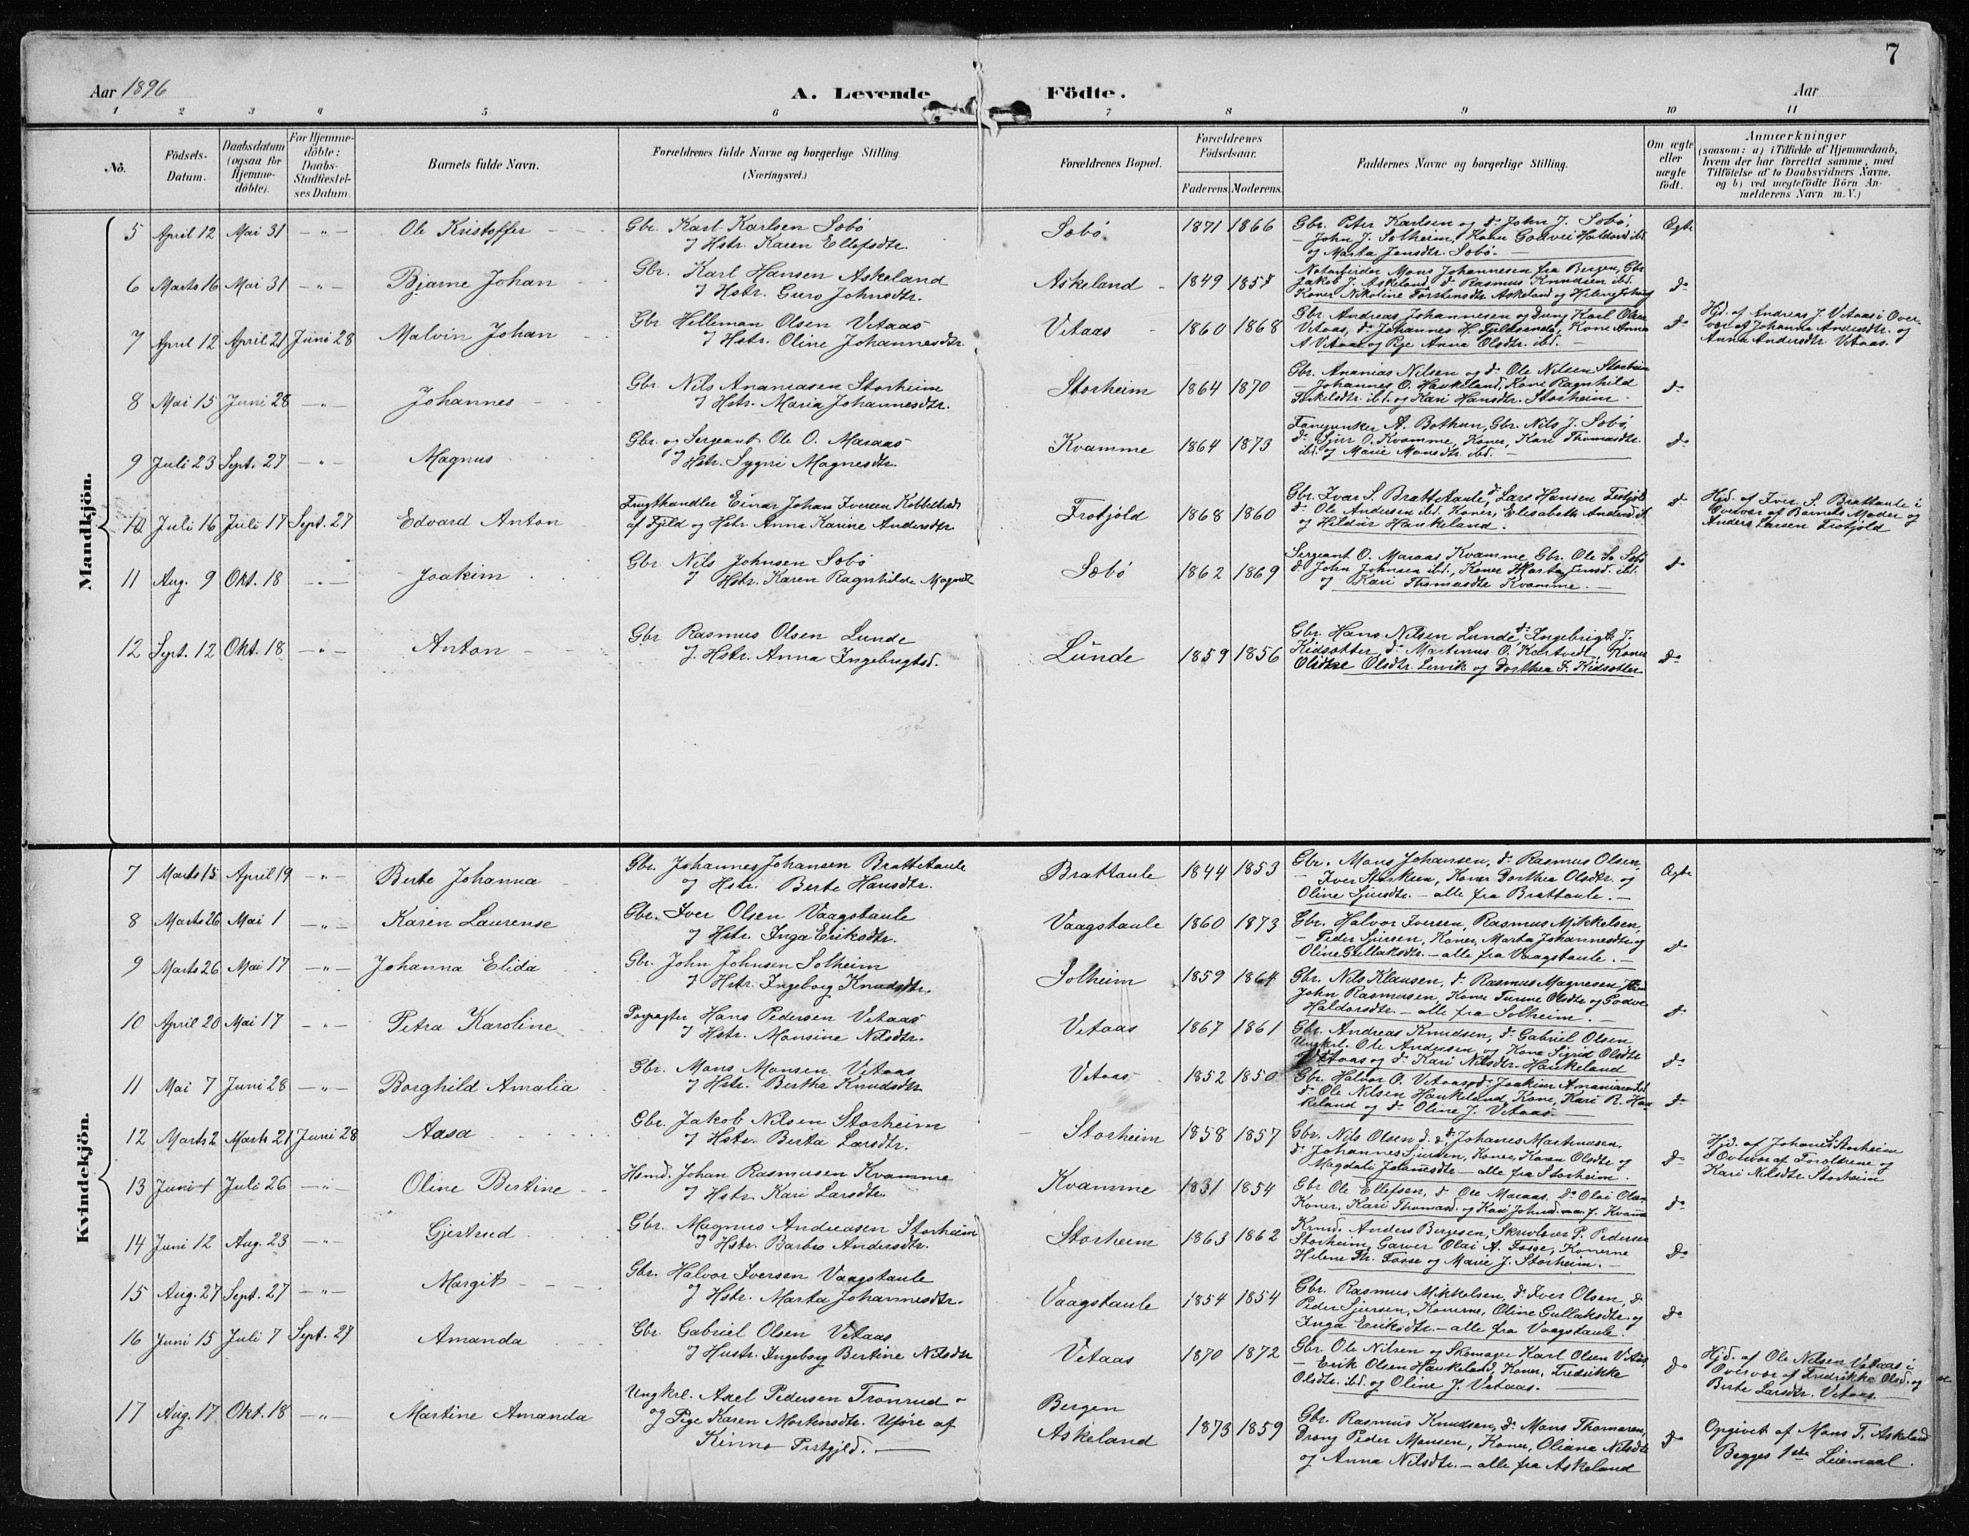 7
Aar 1896
A. Levende Födte.
Aar
1 2 3 4 5 6 7 8 9 10 11
No.
Födsels-Datum.
Daabsdatum (ogsaa for Hjemmedöbte).
For Hjemmedöbte: Daabs-Stadfæstelses Datum.
Barnets fulde Navn.
Forældrenes fulde Navne og borgerlige Stilling (Næringsvei.)
Forældrenes Bopæl.
Forældrenes Födselsaar.
Faderens. Moderens.
Faddernes Navne og borgerlige Stilling.
Om ægte eller uægte födt.
Anmærkninger
(saasom: a) i Tilfælde af Hjemmedaab, hvem der har forrettet samme, med Tilföielse af to Daabsvidners Navne, og b) ved uægtefödte Börn Anmelderens Navn m. V.)
Mandkjön.
5 April 12 Mai 31 -"- Ole Kristoffer
Gbr. Karl Karlsen Søbø
Hstr. Karen Ellefsdtr.
Søbø 1871 1866
Gbr. Peter Karlsen og do John J. Søbø,
John J. Solheim, Kone Haldorsd. ibd
og Marta Jensdtr. Søbø.
Ægte
6 Marts 16 Mai 31 -"- Bjarne Johan
Gbr. Karl Hansen Askeland
Hstr. Guro Johnsdtr.
Askeland 1849 1857
Mons Johannesen fra Bergen, Gbr
Jakob J. Askeland, do Rasmus Knudsen ibd.
Koner Nikoline Torstensdtr Askeland og Helene
do
7 April 12 April 21 Juni 28 Malvin Johan
Gbr Helleman Olsen Vetaas
Hstr. Oline Johannesdtr.
Vetaas 1860 1868
Gbr. Andreas Johannesen og Dreng Karl Olsen
Vetaas, do Johannes H. Kone Anna
A Vetaas og Pige Anna Olsdtr. ibd.
do
Hjd. af Andreas J. Vetaas i Over-
vær af Johanna Andersdtr. og
Anna Andersdtr Vetaas.
8 Mai 15 Juni 28 -"- Johannes
Gbr. Nils Ananiasen Storheim
Hstr. Maria Johannesdtr.
Storheim 1864 1870
Gbr. Ananias Nilsen og do Ole Nilsen Storheim
Johannes O. Haukeland, Kone Ragnhild
ibd. og Kari Hansdtr. Storheim.
do
9 Juli 23 Sept. 27 -"- Magnus
Gbr. og Sergeant Ole O. Maraas
og Hstr. Sygni Magnesdtr.
Kvamme 1864 1873
A. Bothun, Gbr. Nils J. Søbø,
do Sjur O. Kvamme, Koner, Kari Thomasdtr
ibd. og Marie Monsdtr ibd.
do
10 Juli 16 Juli 17 Sept. 27 Edvard Anton
Frugthandler Einar Johan Iversen
af Fjeld og Hstr. Anna Karine Andersdtr
1868 1860
Gbr. Ivar S. Brattetaule, do Lars Hansen
do Ole Andersen ibd. Koner, Elisabeth Andersd.
og Hildur Haukeland.
do
Hjd. af Iver S. Brattaule i
Overvær af Barnets Moder og
Anders Larsen
11 Aug. 9 Okt. 18 -"- Joakim
Gbr Nils Johnsen Søbø
Hstr. Karen Ragnhilde
Søbø 1862 1869
Sergeant O. Maraas Kvamme, Gbr. Ole Søbø
do John Johnsen ibd., Koner Marta Jensd. ibd.
og Kari Thomasdtr Kvamme.
do
12 Sept. 12 Okt. 18 -"- Anton
Gbr Rasmus Olsen Lunde
Hstr. Anna Ingebrigtsd.
Lunde 1859 1856
Gbr Hans Nilsen Lunde, do Ingebrigt J.
do Martinus O. Kartveit, Koner
Olsdtr. Lervik og Dorthea J.
do
Kvindekjön.
7 Marts 15 April 19 -"- Berte Johanna
Gbr. Johannes Johansen Brattetaule
Hstr. Berte Hansdtr.
Brattaule 1844 1853
Gbr. Mons Johansen, do Rasmus Olsen,
Iver Koner Dorthea Olsdtr. og
Oline Sjursdtr. – alle fra Brattaule.
Ægte
8 Marts 26 Mai 1 -"- Karen Laurense
Gbr. Iver Olsen Vaagstaule
Hstr. Inga Eriksdtr.
Vaagstaule 1860 1873
Gbr. Halvor Iversen, Rasmus Mikkelsen,
Peder Sjursen, Koner, Marta Johannesdtr. og
Oline Gullaksdtr. – alle fra Vaagstaule.
do
9 Marts 26 Mai 17 -"- Johanna Elida
Gbr. John Johnsen Solheim
Hstr. Ingeborg Knudsdtr.
Solheim 1859 1864
Gbr. Nils Klausen, do Rasmus Magnesen,
John Rasmussen, Koner Olsdtr og
Haldorsdtr. – alle fra Solheim.
do
10 April 20 Mai 17 -"- Petra Karoline
Hans Pedersen Vetaas
Hstr. Monsine Nilsdtr.
Vetaas 1867 1861
Gbr. Andreas Knudsen, do Gabriel Olsen
Ungkrl. Ole Andersen og Kone Sigrid Olsdtr
Vetaas og do Kari Nilsdtr. Haukeland
do
11 Mai 7 Juni 28 -"- Borghild Amalia
Gbr. Mons Monsen Vetaas
Hstr. Bertha Knudsdtr
Vetaas 1852 1850
Gbr. Halvor O. Vetaas, do Joakim
do Ole Nilsen Haukeland, Kone, Kari R. Hau-
keland og do Oline J. Vetaas
do
12 Marts 2 Marts 21 Juni 28 Aasa
Gbr. Jakob Nilsen Storheim
Hstr. Berta Larsdtr.
Storheim 1858 1857
Gbr. Nils Olsen, do Johanes Martinusen,
do Johannes Sjursen, Koner, Karen Olsdtr og
Magdali – alle fra Storheim.
do
Hjd. af Johanes Storheim
i Overvær af Forældrene og
Kari Nilsdtr Storheim
13 Juni 1 Juli 26 -"- Oline Bertine
Hsmd. Johan Rasmusen Kvamme
Hstr. Kari Larsdtr.
Kvamme 1831 1854
Gbr Ole Ellefsen, do Ole Maraas. do Olai Olsen
Koner, Kari Thomasd. og Kari Johnsd.
do
14 Juni 12 Aug. 23 -"- Gjertrud
Gbr. Magnus Andreasen Storheim
og Hstr. Barbro Andersdtr.
Storheim 1863 1862
Anders Børgesen, P. Pedersen
Storheim, Garver Olai A. Fosse, Konerne
Helene Th. Fosse og Marie J. Storheim.
do
15 Aug. 27 Sept. 27 -"- Margit
Gbr. Halvor Iversen Vaagstaule
og Hstr. Marta Johannesdtr.
Vaagstaule 1854 1854
Gbr. Rasmus Mikkelsen, do Iver Olsen, do
Peder Sjursen, Konerne, Oline Gullaksdtr. og
Inga Eriksdtr. – alle fra Vaagstaule.
do
16 Juni 15 Juli 7 Sept. 27 Amanda
Gbr Gabriel Olsen Vetaas
Hustr. Ingeborg Bertine Nilsdtr
Vetaas 1870 1872
Gbr Ole Nilsen og Skomager Karl Olsen Vetaas
Erik Olsen Haukeland, Koner, Fredrikke
Olsdtr. ibd. og Oline J. Vetaas.
do
Hjd. af Ole Nilsen Vetaas i
Overvær af Fredrikke Olsd. og
Berte Larsdtr. Vetaas.
17 Aug. 17 Okt. 18 -"- Martine Amanda
Ungkrl. Axel Pedersen Tronrud
og Pige Karen Mortensdtr. Uføre af
Kinno
Bergen
Askeland
1873 1859
Gbr. Rasmus Knudsen, do Mons Thomasen,
Dreng Peder Monsen, Koner, Oliana Nilsdtr
og Anna Nilsdtr. – alle fra Askeland
Opgivet af Mons T. Askeland
Begges 1ste Leiermaal.